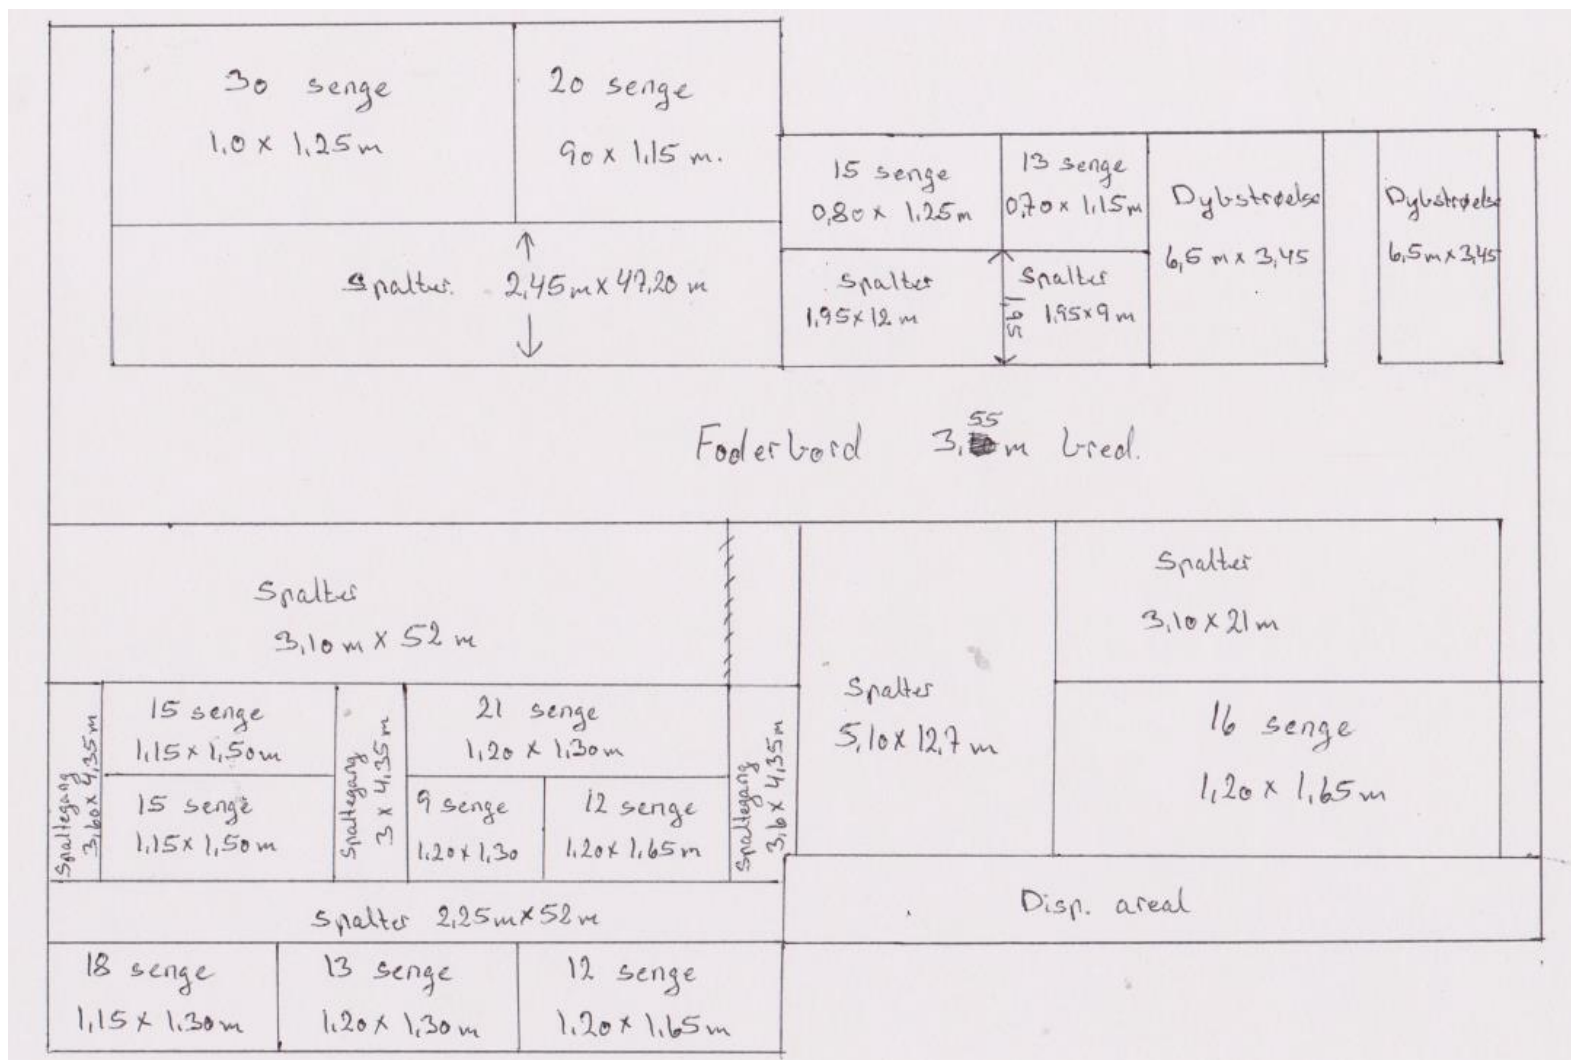 30 senge
1,0 x 1,25 m
20 senge
90 x 1,15 m.
15 senge
0,80 x 1,25 m
13 senge
0,70 x 1,15 m
Dybstrøelse
6,5 m x 3,45
Dybstrøelse
6,5 m x 3,45
Spalter. 2,45 m x 47,20 m
Spalter
1,95 x 12 m
1,95
Spalter
1,95 x 9 m
Foderbord 3,55 m bred.
Spalter
3,10 m x 52 m
Spalter
5,10 x 12,7 m
Spalter
3,10 x 21 m
16 senge
1,20 x 1,65 m
Spaltegang
3,60 x 4,35 m
15 senge
1,15 x 1,50 m
15 senge
1,15 x 1,50 m
Spaltegang
3 x 4,35 m
21 senge
1,20 x 1,30 m
9 senge
1,20 x 1,30
12 senge
1,20 x 1,65 m
Spaltegang
3,6 x 4,35 m
Spalter 2,25 m x 52 m
Disp. areal
18 senge
1,15 x 1,30 m
13 senge
1,20 x 1,30 m
12 senge
1,20 x 1,65 m